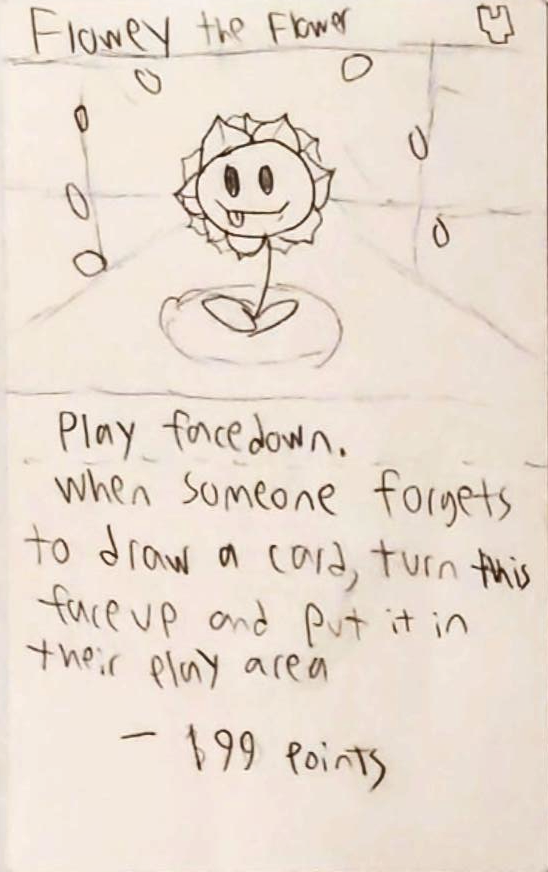 Flowey the Flower
Play facedown.
When someone forgets
to draw a card, turn this
faceup and put it in
their play area
- 199 points